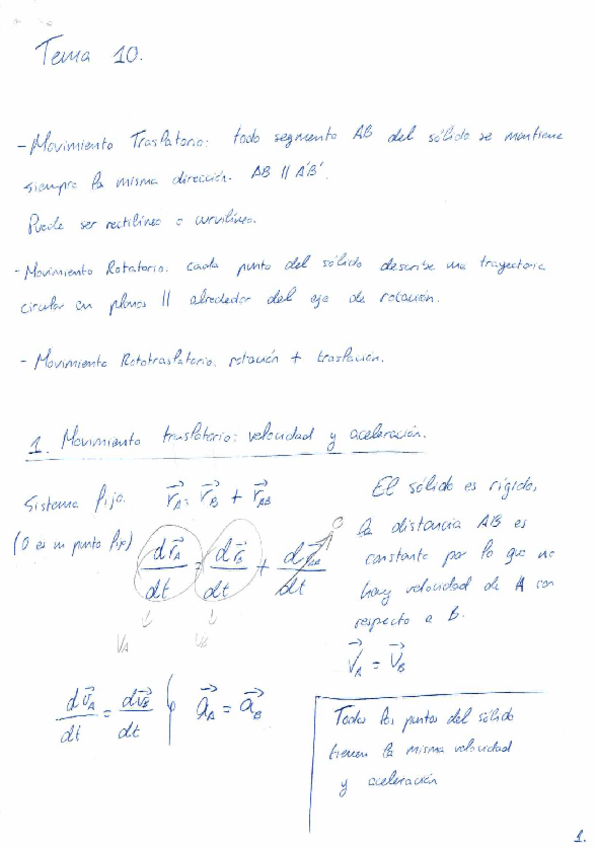 Tema 10.
- Movimiento Traslatorio: todo segmento AB del sólido se mantiene
siempre la misma dirección. AB // A'B'.
Puede ser rectilíneo o curvilíneo.
- Movimiento Rotatorio: cada punto del sólido describe una trayectoria
circular en planos // alrededor del eje de rotación.
- Movimiento Rototraslatorio: rotación + traslación.
1. Movimiento traslatorio: velocidad y aceleración.
Sistema fijo. r⃗A = r⃗B + r⃗AB
(O es un punto fijo) dr⃗A/dt = dr⃗B/dt + dr⃗AB/dt 0
VA VB
El sólido es rígido,
la distancia AB es
constante por lo que no
hay velocidad de A con
respecto a B.
V⃗A = V⃗B
dv⃗A/dt = dv⃗B/dt a⃗A = a⃗B
Todos los puntos del sólido
tienen la misma velocidad
y aceleración
1.